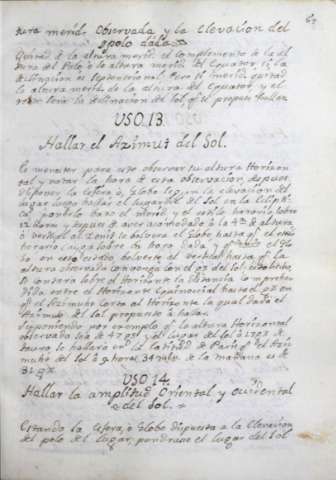 tura merid. Observada y la Elevacion del
polo dada
Quitad de la altura merid. el complemento de la al
tura del Polo o la altura merid. del Equator si la
declinacion es septentrional. Pero si merid. quitad
la altura merid. de la altura del Equator y el
resto sera la declinacion del Sol q.e se propuso hallar
USO. 13.
Hallar el Azimut del Sol.
Es menester para esto observar su altura Horizon
tal y notar la hora de esta observacion despues
disponer la esfera o Globo segun la elevacion del
lugar luego hallar el lugar del Sol en la Eclipti
ca ponerlo bajo el merid. y el estilo horario sobre
12 horas y despues
o vertical al Zenith se bolvera el Globo hasta q.e el estilo
horario caiga sobre la hora dada y el Glo
bo en este estado bolverse el vertical hasta q.e la
altura observada convenga con el del Sol
se contara sobre el Horizonte la distancia comprehen
dida entre el Horizonte Equinoccial hasta el en
q.e el Azimutho corta al Horizonte la qual dara el
Azimuth del Sol propuesto a hallar.
Suponiendo por exemplo q.e la altura Horizontal
observada sea de 47 y el lugar del Sol a
Tauro se hallara en la de Paris q.e el Azi
mutho del Sol a 9 horas 34 de la mañana es de
USO 14.
Hallar la amplitud Oriental y Occidental
del Sol.
Estando la esfera, o Globo dispuesta a la Elevacion
del polo del lugar, pondrase el lugar del Sol